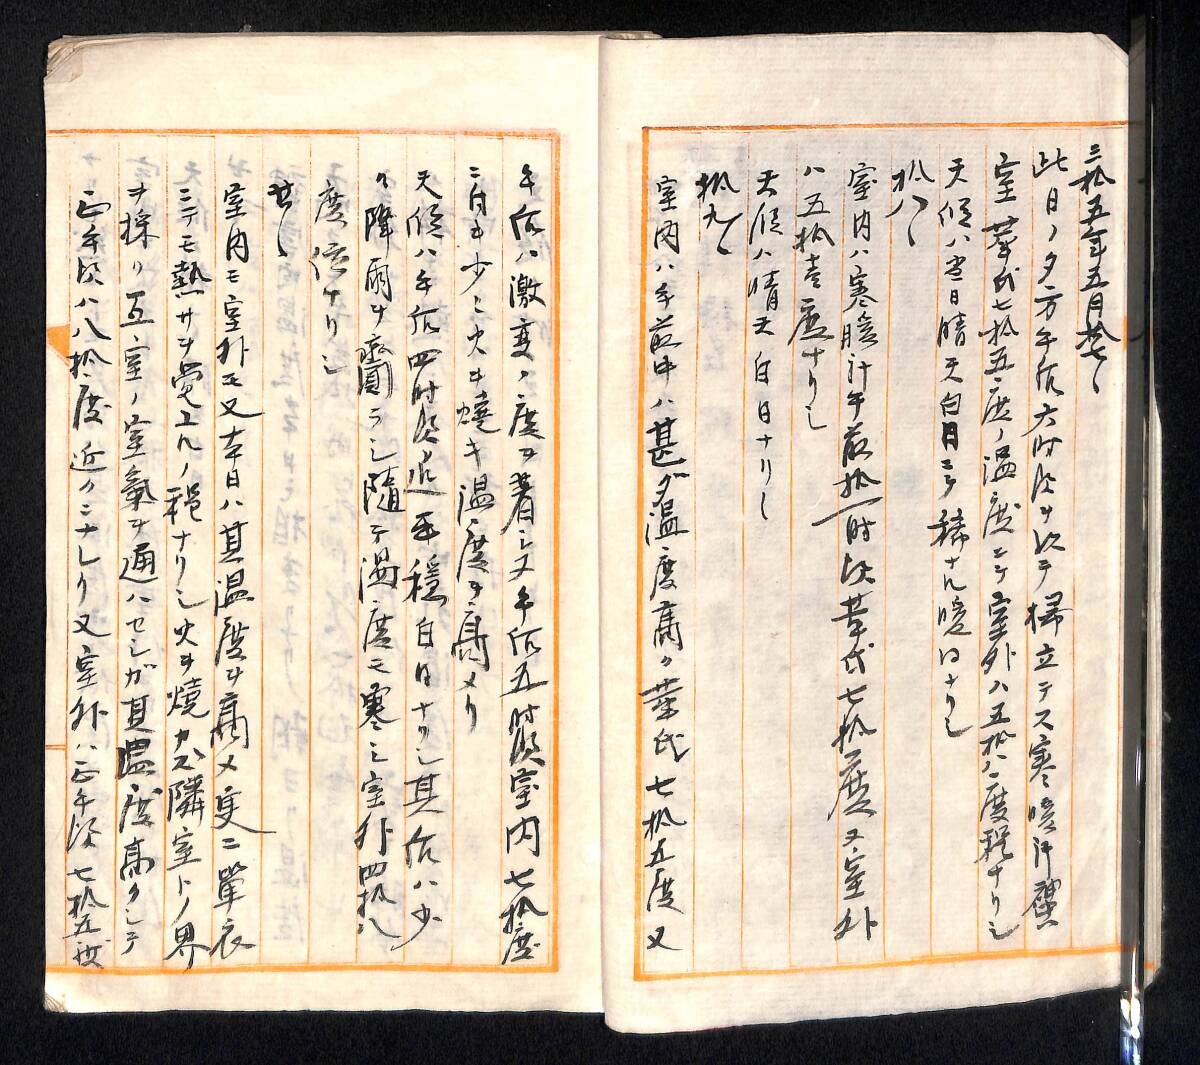 三拾五年五月拾七日
此日ノ夕方午后六時頃ヲ以テ掃立テス寒暖計蠶
室華氏七拾五度ノ温度ニテ室外ハ五拾八度程ナリシ
天候ハ当日晴天白日ニテ稀ナル暖日ナリシ
拾八日
室内ハ寒暖計午前拾一時頃華氏七拾度又室外
ハ五拾壱度ナリシ
天候ハ晴天白日ナリシ
拾九日
室内ハ午前中ハ甚ダ温度高ク華氏七拾五度又
午后ハ激変ノ度ヲ著シ又午后五時頃室内七拾度
ニ付キ少シ火ヲ焼キ温度ヲ高メリ
天候ハ午后四時頃迄平穏白日ナリシ其后ハ少
々降雨ヲ齎ラシ随テ温度モ寒シ室外四拾八
度位ナリシ
廿日
室内モ室外モ又本日ハ其温度ヲ高メ更ニ單衣
ニテモ熱サヲ覚エルノ程ナリシ火ヲ焼カズ隣室トノ界
ヲ採リ互室ノ室氣ヲ通ハセシガ其温度高クシテ
正午頃ハ八拾度近クニナレリ又室外ハ正午頃七拾五度